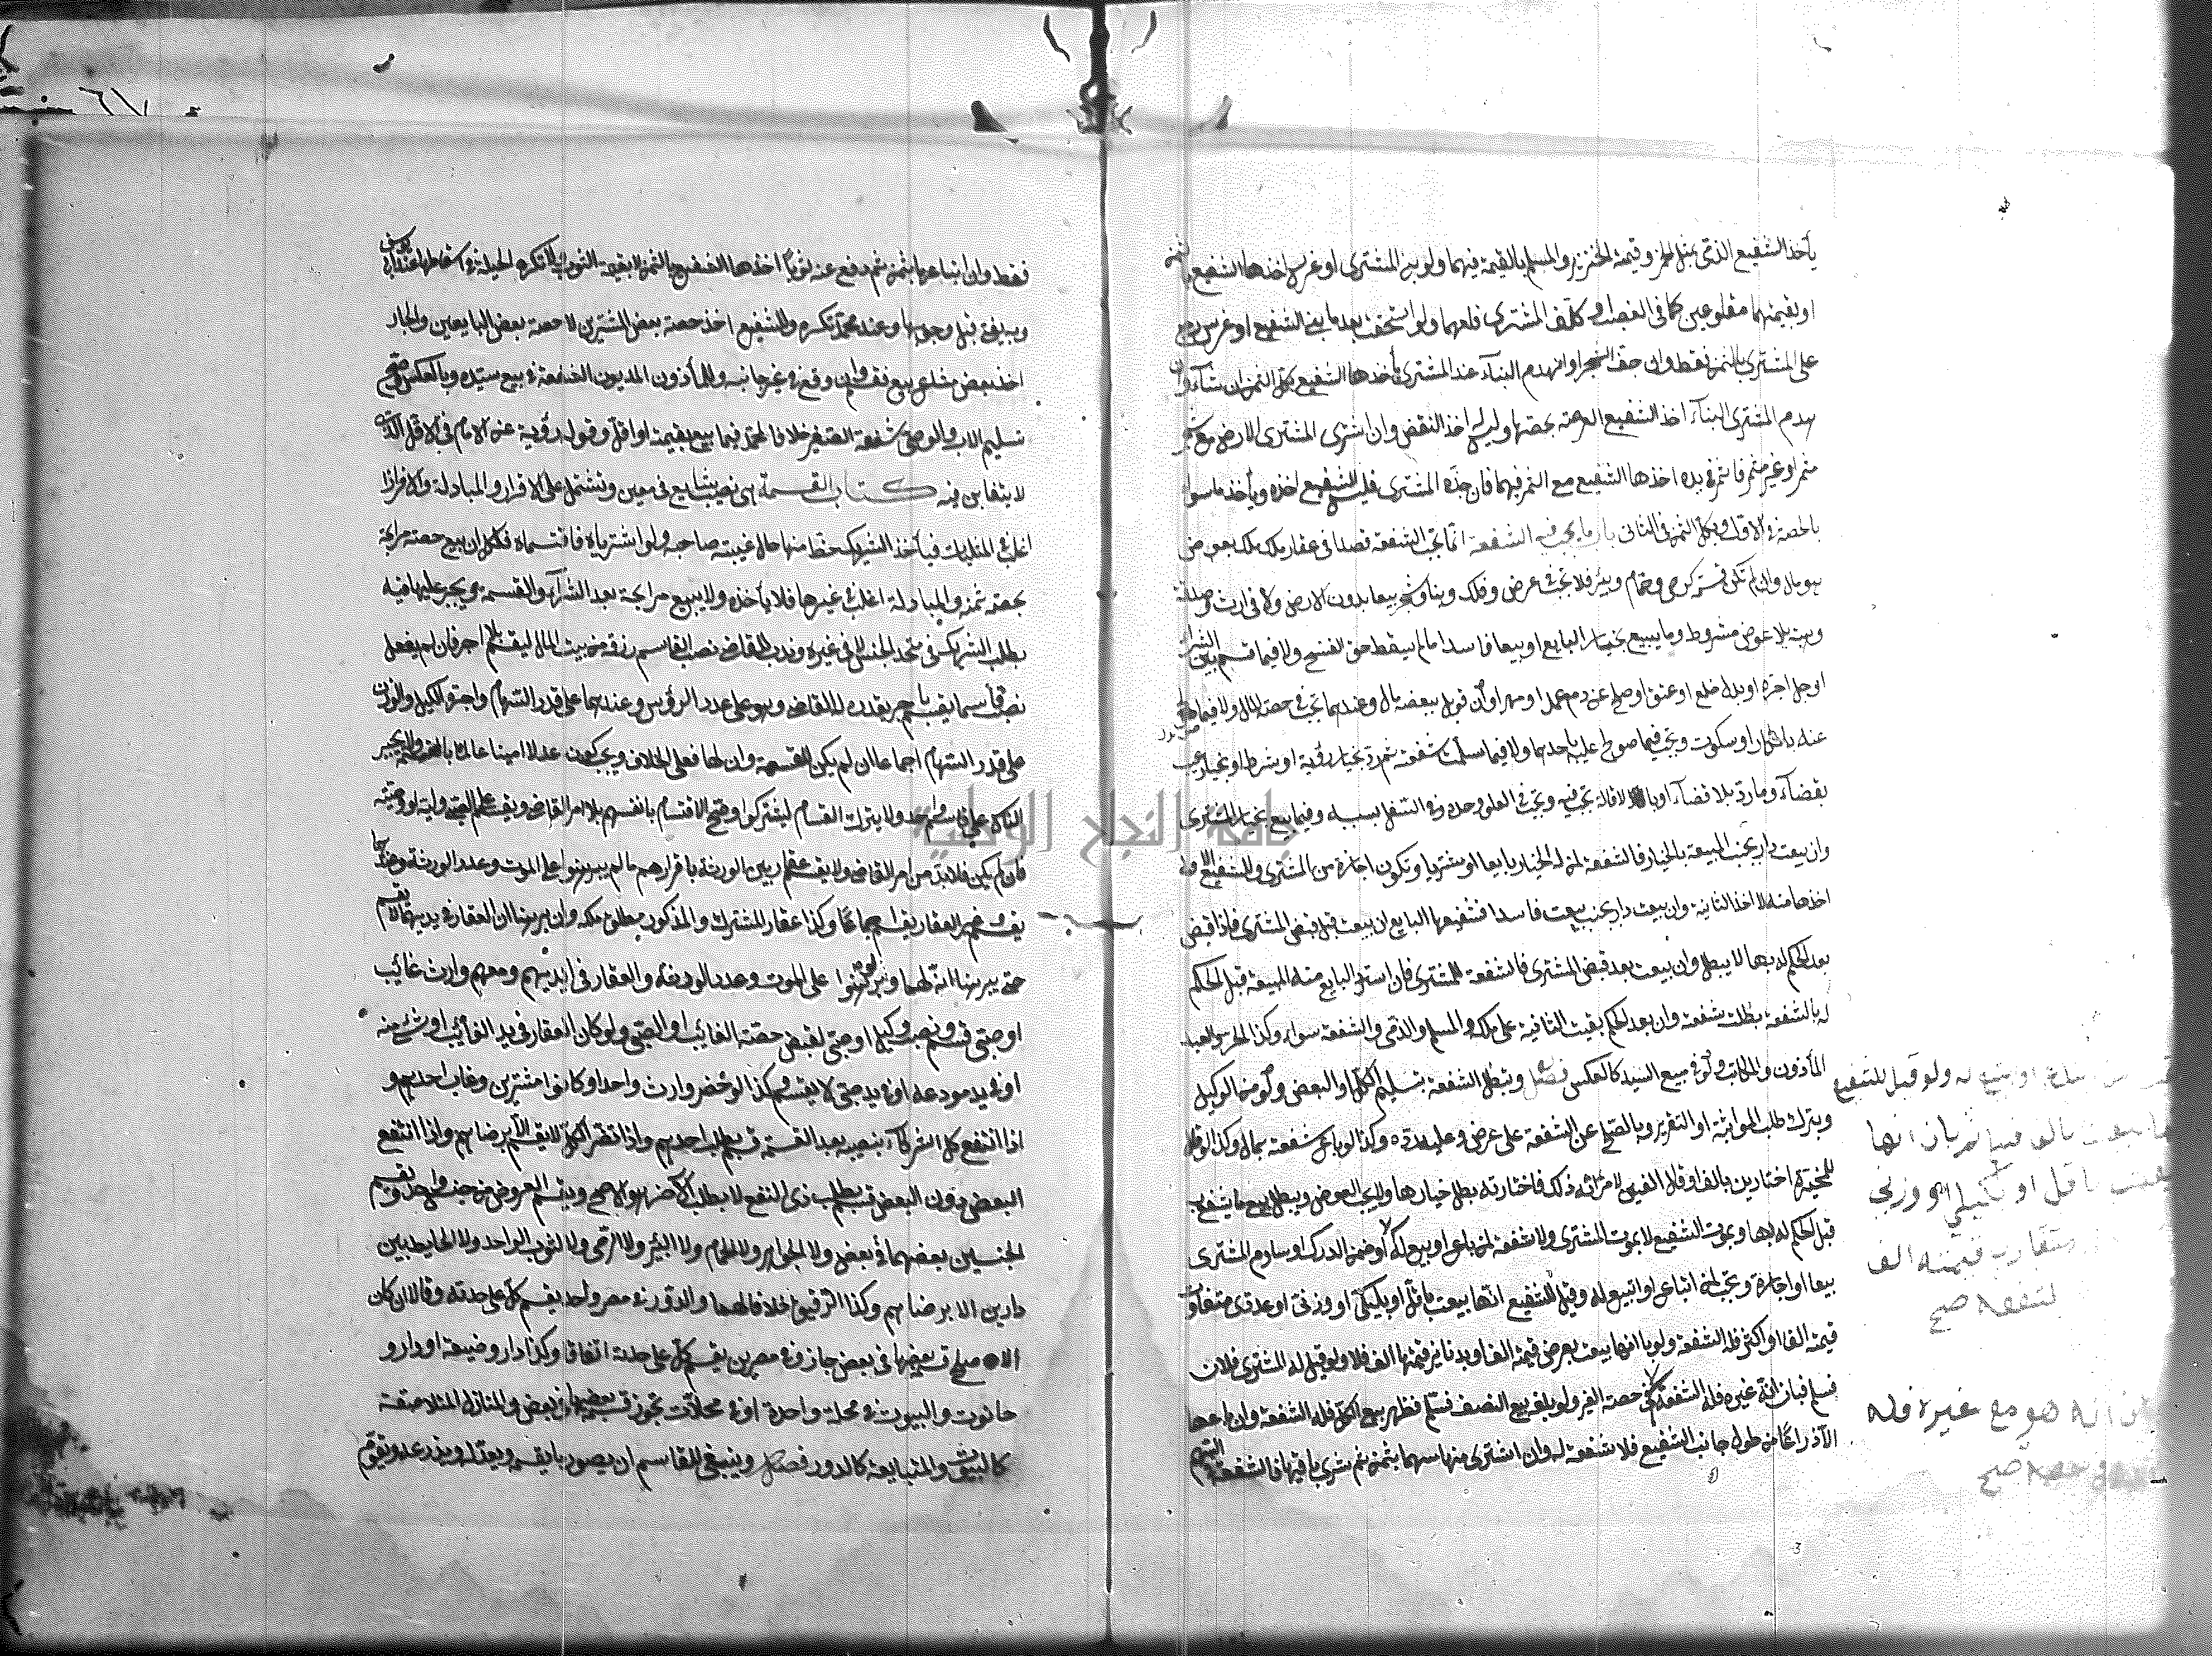 يأخذ الشفيع الذمى بمثل الخمر وقيمة الخنزير والمسلم بالقيمة فيهما ولو بنى المشترى او غرس اخذها الشفيع بالثمن
او بقيمتهما مقلوعين كما فى الغصب او كلف المشترى قلعهما ولو استحقت بعد ما بنى الشفيع او غرس رجع
على المشترى بالثمن فقط وان جف الشجر او انهدم البناء عند المشترى يأخذها الشفيع بكل الثمن ان شاء وان
هدم المشترى البناء اخذ الشفيع العرصة بحصتها وليس له اخذ النقض وان اشترى المشترى الارض مع شجر
مثمر او غير مثمر فاثمر فى يده اخذها الشفيع مع الثمر فيهما فان جذه المشترى فليس للشفيع اخذه ويأخذ ما سواه
بالحصة فى الاول وبكل الثمن فى الثانى باب ما يجب فيه الشفعة انما تجب الشفعة قصدا فى عقار ملك بعوض
هو مال وان لم تكن قسمته كرحى وحمام وبئر فلا تجب فى عرض وفلك وبناء وشجر بيعا بدون الارض ولا فى ارث وصدقة
وهبة بلا عوض مشروط وما بيع بخيار البايع او بيعا فاسدا ما لم يسقط حق الفسخ ولا فيما قسم بين الشركاء
او جعل اجرة او بدل خلع او عتق او صلح عن دم عمد او مهر او ان قوبل ببعضه مال وعندهما تجب فى حصة المال ولا فيما صولح
عنه بانكار او سكوت وتجب فيما صولح عليه باحدهما ولا فيما سلمت شفعته ثم رد بخيار رؤية او شرط او بخيار عيب
بقضاء وما رد بلا قضاء او بالاقالة تجب فيه وتجب فى العلو وحده وفى السفل بسببه وفيما بيع بخيار المشترى
وان بيعت دار بجنب المبيعة بالخيار فالشفعة لمن له الخيار بايعا او مشتريا وتكون اجازة من المشترى وللشفيع الاول
اخذها منه لا اخذ الثانية وان بيعت دار بجنب بيعت فاسدا فشفيعها البايع ان بيعت قبل قبض المشترى فان قبض
بعد الحكم له بها لا يبطل وان بيعت بعد قبض المشترى فالشفعة للمشترى فان استرد البايع منه المبيعة قبل الحكم
له بالشفعة بطلت شفعته وان بعد الحكم بقيت الثانية على ملكه والمسلم والذمى والشفعة سواء وكذا الحر والعبد
المأذون والمكاتب ولو فى مبيع السيد كالعكس فصل وتبطل الشفعة بتسليم الكل او البعض ولو من الوكيل
وبترك طلب المواثبة او التقرير وبالصلح عن الشفعة على عوض وعليه رده وكذا لو باع شفعته بمال وكذا لو قال
للمخيرة اختارينى بالف او قال العنين لامرأته ذلك فاختارته بطل خيارها ولا يجب العوض ويبطل بيع ما يشفع به
قبل الحكم له بها وبموت الشفيع لا بموت المشترى ولا شفعة لمن باع او بيع له او ضمن الدرك او ساوم المشترى
بيعا او اجارة وتجب لمن ابتاع او ابتيع له وقيل للشفيع انها بيعت باقل او بكيلى او وزنى او عددى متفاوت
قيمته الف او اكثر فله الشفعة ولو بان انها بيعت بعرض قيمته الف او بدنانير قيمتها الف فلا ولو قيل له المشترى فلان
فسلم فبان انه غيره فله الشفعة حصة الغير ولو بلغه بيع النصف فسلم فظهر بيع الكل فله الشفعة وان باعها
الا ذراعا من طول جانب الشفيع فلا شفعة له وان اشترى منها سهما بثمن ثم شرى باقيها فالشفعة السهم
او ابتيع له ولو قيل للشفيع
بيعت بالف فسلم ثم بان انها
بيعت باقل او بكيلى او وزنى
متقارب قيمته الف
لشفعه صح
انه هو مع غيره فله
حصه صح
فقط وان ابتاعها بثمن ثم دفع عنه ثوبا اخذها الشفيع بالثمن لا بقيمة الثوب ولا تكره الحيلة فى اسقاطها عند ابى يوسف
وبه يفتى قبل وجوبها وعند محمد تكره وللشفيع اخذ حصة بعض المشترين لا حصة بعض البايعين وللجار
اخذ بعض مشاع بيع فقسم وان وقع فى غير جانبه وللمأذون المديون الشفعة فى بيع سيده وبالعكس وصح
تسليم الاب والوصى شفعة الصغير خلافا لمحمد فيما بيع بقيمته او اقل وقوله رواية عن الامام فى الاقل الذى
لا يتغابن فيه كتاب القسمة هى نصيب شايع فى معين وتشتمل على الافراز والمبادلة والافراز
اغلب فى المثليات فيأخذ الشريك حظه منها حال غيبة صاحبه ولو اشترياه فاقتسماه فلكل ان يبيع حصته مرابحة
بحصة ثمنه والمبادلة اغلب فى غيرها فلا يأخذه ولا يبيع مرابحة بعد الشراء والقسمة ويجبر عليها فيه
بطلب الشريك فى متحد الجنس لا فى غيره وندب للقاضى نصب القاسم رزقه من بيت المال ليقسم بلا اجر فان لم يفعل
نصب قاسما يقسم باجر يقدره له القاضى وهو على عدد الرؤس وعندهما على قدر السهام واجرة الكيل والوزن
على قدر السهام اجماعا ان لم يكن للقسمة وان لها فعلى الخلاف ويجب كونه عدلا امينا عالما بالقسمة ولا يجبر
الناس على قاسم واحد ولا يترك القسام ليشتركوا وصح الاقتسام بانفسهم بلا امر القاضى ويقسم على الصبى وليه او وصيه
فان لم يكن فلا بد من امر القاضى ولا يقسم عقار بين الورثة باقرارهم ما لم يبرهنوا على الموت وعدد الورثة وعندهما
يقسم غير العقار يقسم اجماعا وكذا عقار المشترك والمذكور مطلق ملكه وان برهنا ان العقار فى يديهما لا يقسم
حتى يبرهنا انه لهما ولو برهنوا على الموت وعدد الورثة والعقار فى ايديهم ومعهم وارث غائب
او صبى قسم ونصب وكيل او وصى لقبض حصة الغائب او الصبى ولو كان العقار فى يد الغائب او شئ منه
او فى يد مودعه او فى يد صبى لا يقسم وكذا لو حضر وارث واحد او كانوا مشترين وغاب احدهم و
اذا انتفع كل الشركاء بنصيبه بعد القسمة قسم بطلب احدهم واذا تضرر الكل لا يقسم الا برضاهم واذا انتفع
البعض دون البعض قسم بطلب ذى النفع لا بطلب الآخر هو الاصح ويقسم العروض من جنس واحد ولا يقسم
الجنسين بعضهما فى بعض ولا الجواهر ولا الحمام ولا البئر ولا الرحى ولا الثوب الواحد ولا الحايط بين
دارين الا برضاهم وكذا الرقيق خلافا لهما والدور فى مصر واحد يقسم كل على حدته وقالا ان كان
الاصلح قسمة بعضها فى بعض جاز وفى مصرين يقسم كل على حدته اتفاقا وكذا دار وضيعة او دار و
حانوت والبيوت فى محلة واحدة او فى محلات تجوز قسمة بعضها فى بعض والمنازل المتلاصقة
كالبيوت والمتباينة كالدور فصل وينبغى للقاسم ان يصور ما يقسمه ويعدله ويذرعه ويقوم
جامعة النجاح الوطنية